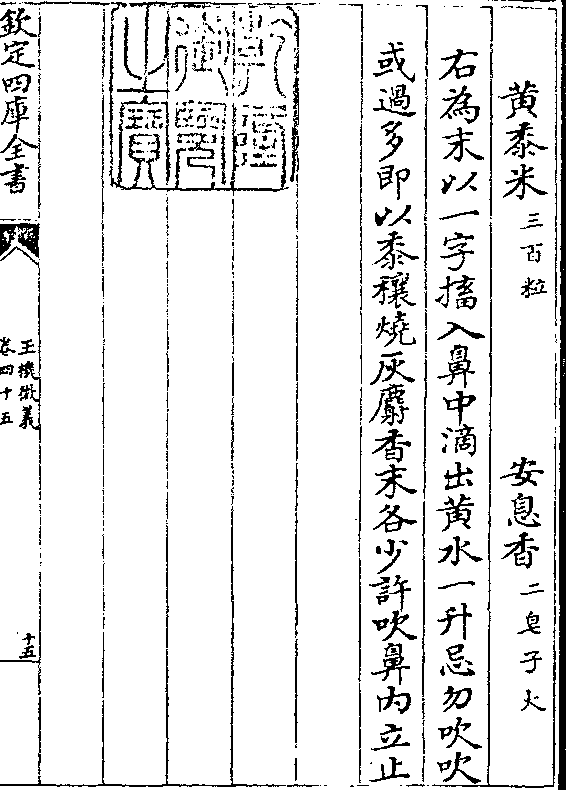 黄黍米三百粒　安息香二皂子大
右為末以一字搐入鼻中滴出黄水一升忌勿吹吹
或過多即以黍穰燒灰麝香末各少許吹鼻内立止
乾隆
御覽
之寶
欽定四庫全書
玉機微義
卷四十五
十五